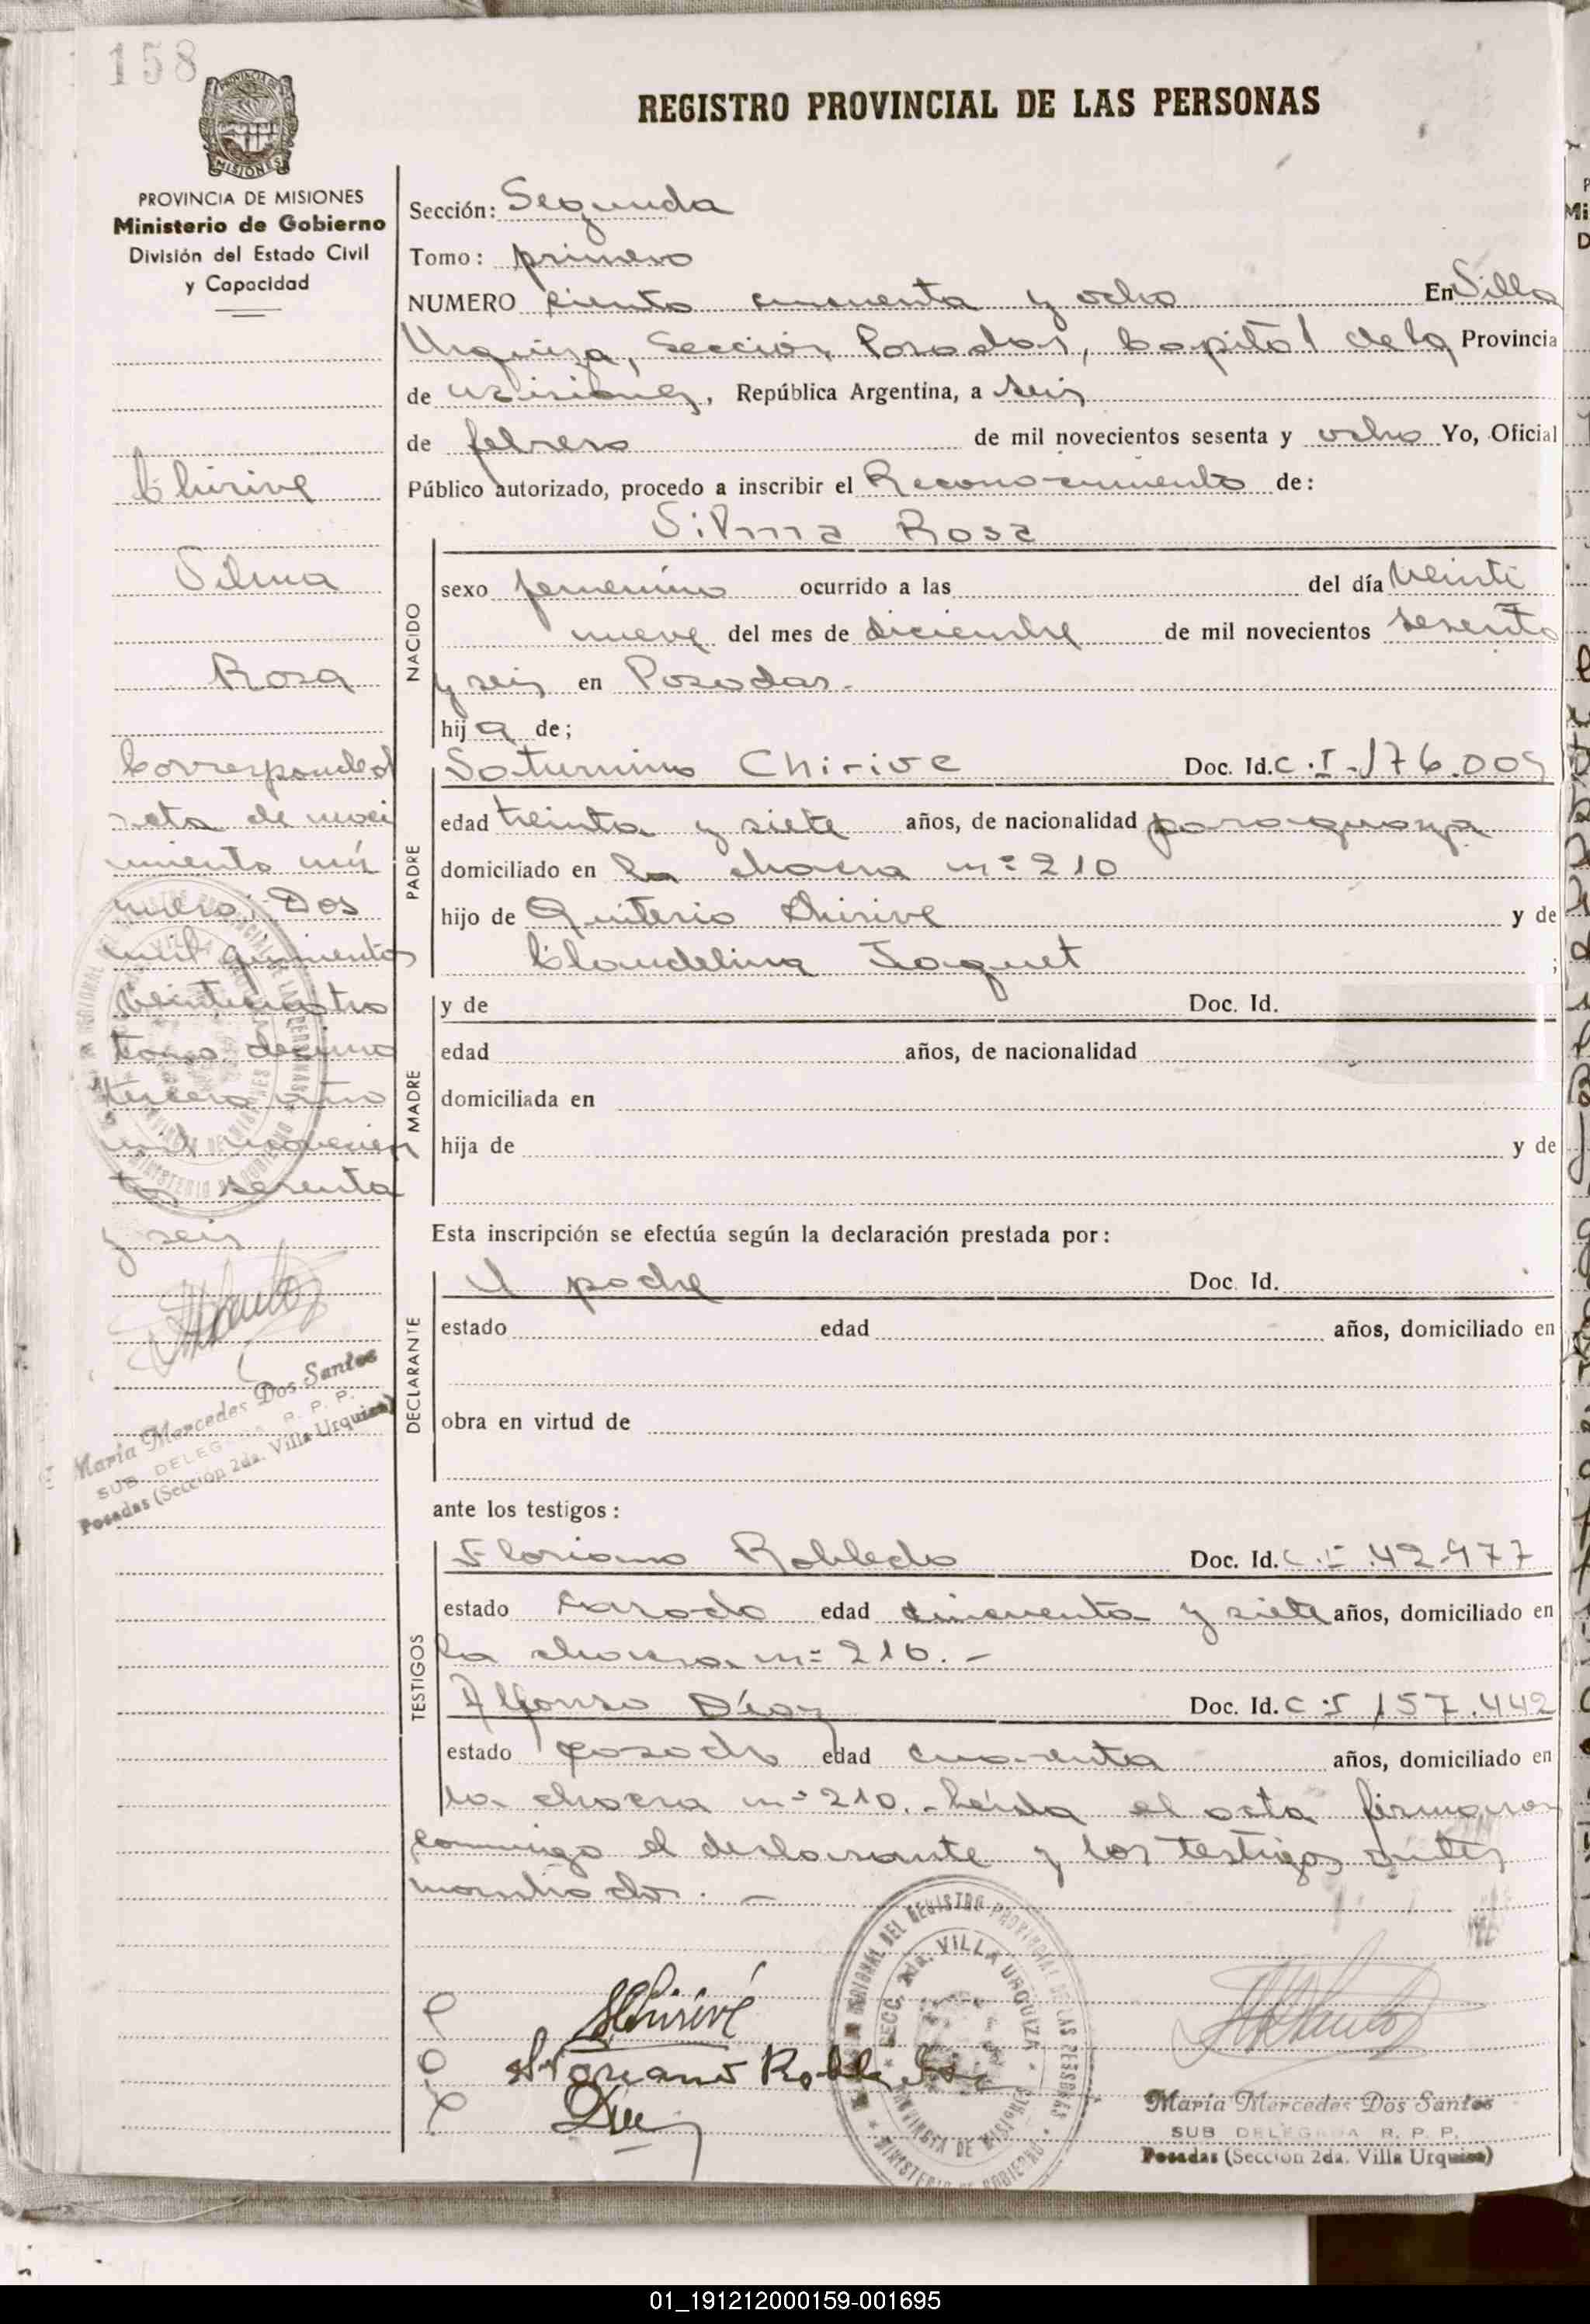 158
REGISTRO PROVINCIAL DE LAS PERSONAS
PROVINCIA DE MISIONES
Ministerio de Gobierno
División del Estado Civil
y Capacidad
Chirive
Vilma
Rosa
Corresponde al
acta de naci
miento nú
mero: Dos
mil quinientos
veinticuatro
tomo decimo
tercero año
mil novecien
tos sesenta
y seis
María Mercedes Dos Santos
SUB DELEGADA R. P. P.
Posadas (Sección 2da. Villa Urquiza)
Sección: Segunda
Tomo: primero
NUMERO ciento cincuenta y ocho En Villa
Urquiza, Sección Posadas, Capital de la Provincia
de Misiones, República Argentina, a seis
de febrero de mil novecientos sesenta y ocho Yo, Oficial
Público autorizado, procedo a inscribir el Reconocimiento de:
Vilma Rosa
NACIDO
sexo femenino ocurrido a las del día veinti
nueve del mes de diciembre de mil novecientos sesenta
y seis en Posadas.
hija de;
PADRE
Saturnino Chirive Doc. Id. C.I. 176.005
edad treinta y siete años, de nacionalidad paraguaya
domiciliado en la chacra nº 210
hijo de Quiterio Chirive y de
Claudelina Jaquet ;
MADRE
y de Doc. Id.
edad años, de nacionalidad
domiciliada en
hija de y de
Esta inscripción se efectúa según la declaración prestada por:
DECLARANTE
El padre Doc. Id.
estado edad años, domiciliado en
obra en virtud de
ante los testigos:
TESTIGOS
Floriano Robledo Doc. Id. C.I. 42.977
estado casado edad cincuenta y siete años, domiciliado en
la chacra nº 210.-
Alfonso Díaz Doc. Id. C.I 157.442
estado casado edad cuarenta años, domiciliado en
la chacra nº 210.- Leída el acta firmaron
conmigo el declarante y los testigos antes
nombrados.-
SChirivé
Floriano Robledo
SECC. 2da. VILLA URQUIZA
PROVINCIA DE MISIONES
MINISTERIO DE GOBIERNO
María Mercedes Dos Santos
SUB DELEGADA R. P. P.
Posadas (Sección 2da. Villa Urquiza)
01_191212000159-001695